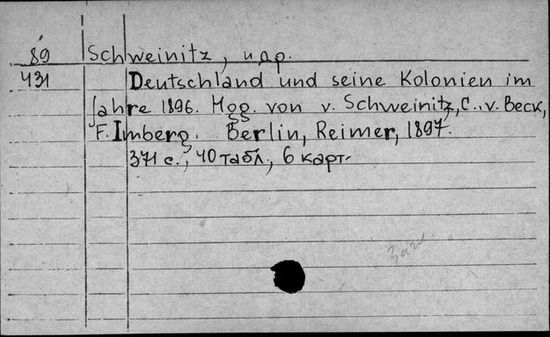 89 Schweinitz, и др.
431 Deutschland und seine Kolonien im
Jahre 1896. Hgg. von v. Schweinitz, C. v. Beck,
F. Imberg. Berlin, Reimer, 1897.
371 с.; 40 табл., 6 карт.